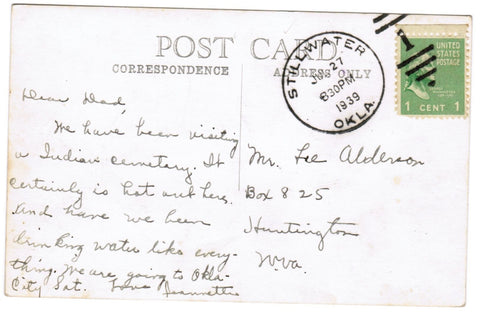 POST CARD
CORRESPONDENCE
ADDRESS ONLY
STILLWATER
27
630PM
1939
OKLA.
1
UNITED
STATES
POSTAGE
1 CENT 1
Dear Dad,
We have been visiting
a Indian cemetary. It
certainly is hot out here.
And have we been
drinking water like every-
thing. We are going to Okla-
City Sat. Love Jeannette
Mr. Lee Alderson
Box 825
Huntington
W.Va.